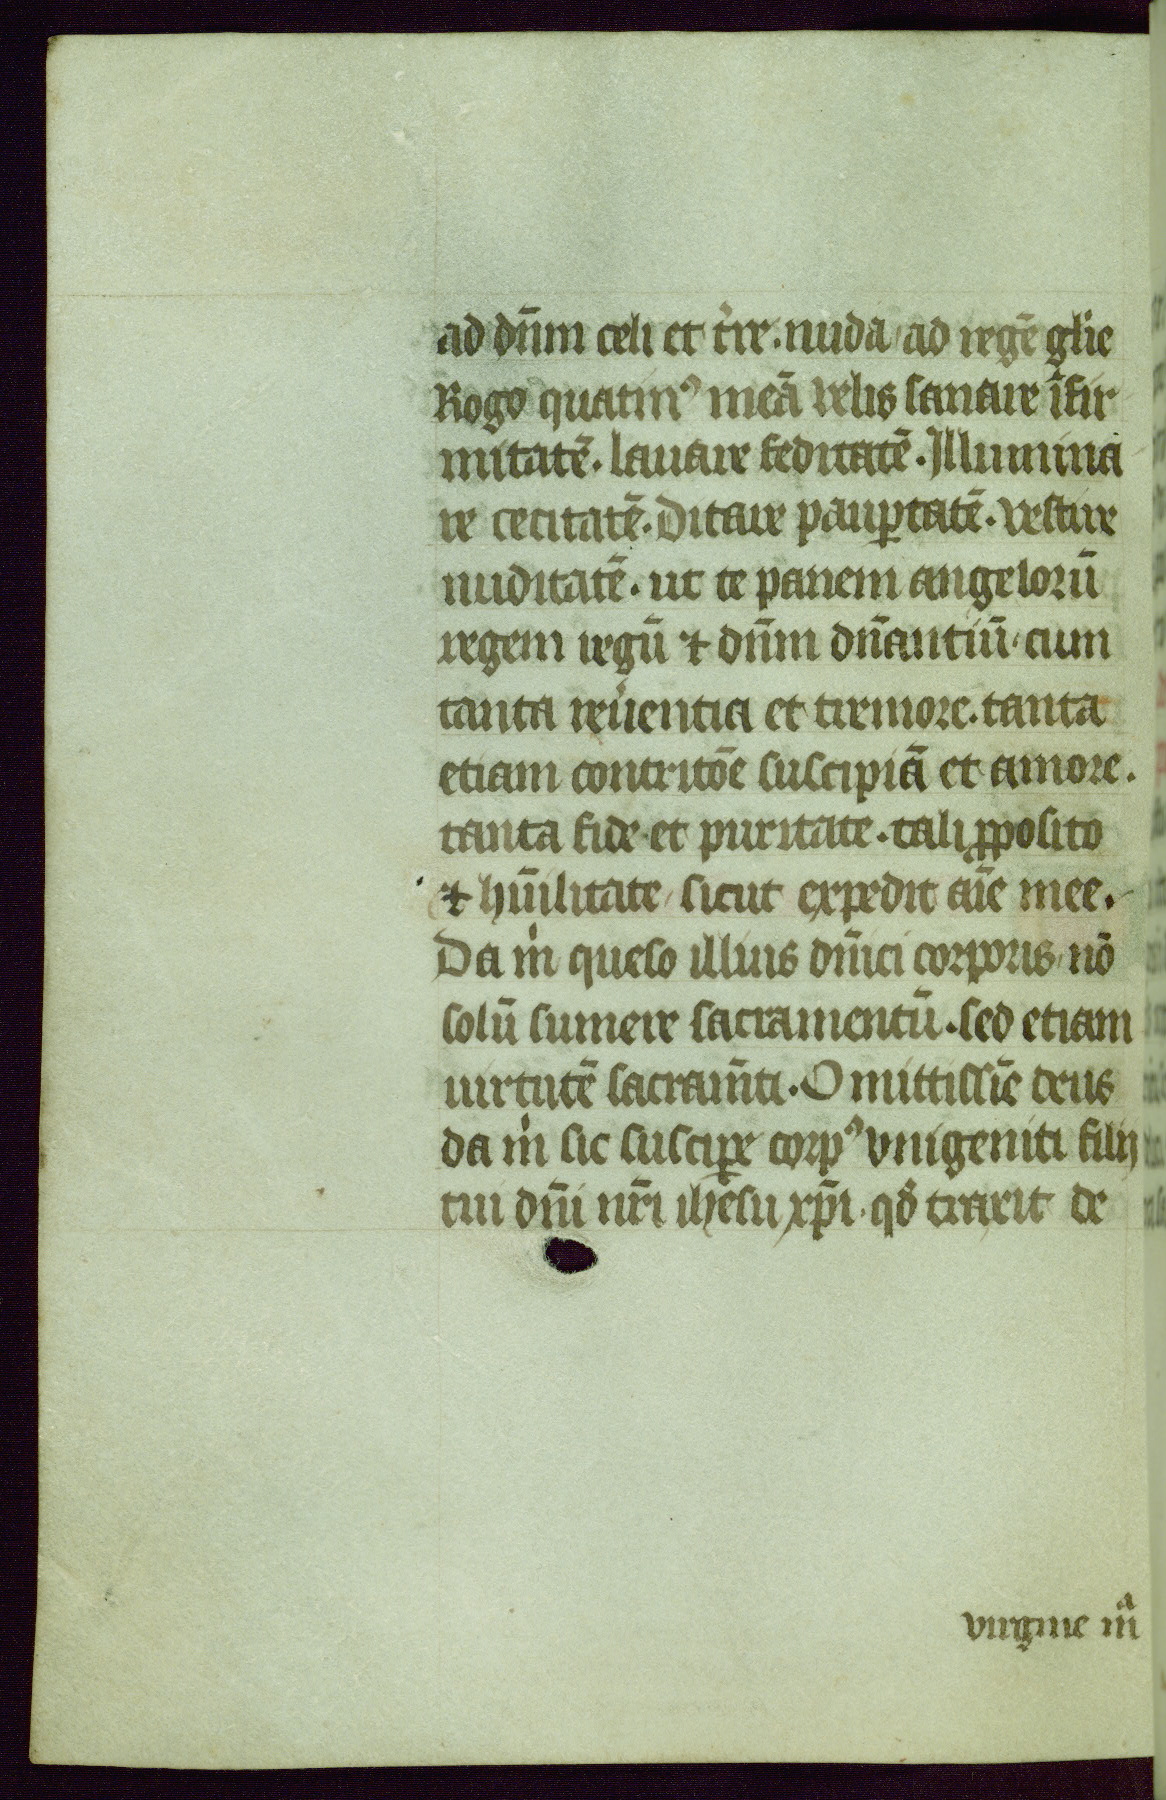 ad dn̄m celi et t̉re. nuda / ad regē gl̄ie
Rogo quatinꝰ meā velis sanare īfir
mitatē. lauare feditatē. Illumina
re cecitatē. Ditare paup̱tatē. vestire
nuditatē. ut te panem angelorū
regem regū ⁊ dn̄m dn̄antiū / cum
tanta reu̓entia et tremore. tanta
etiam contritōe suscipiā et amore.
tanta fide et puritate. tali ꝓposito
⁊ hūilitate / sicut expedit aīe mee.
Da m̓ queso illius dn̄ici corporis / nō
solū sumere sacramentū. sed etiam
uirtutē sacram̄ti. O mittissīe deus
da m̓ sic suscipe̱ corpꝰ vnigeniti filij
tui dn̄i nr̄i ih̄esu xp̄i. qd̓ traxit de
virgine mͣ